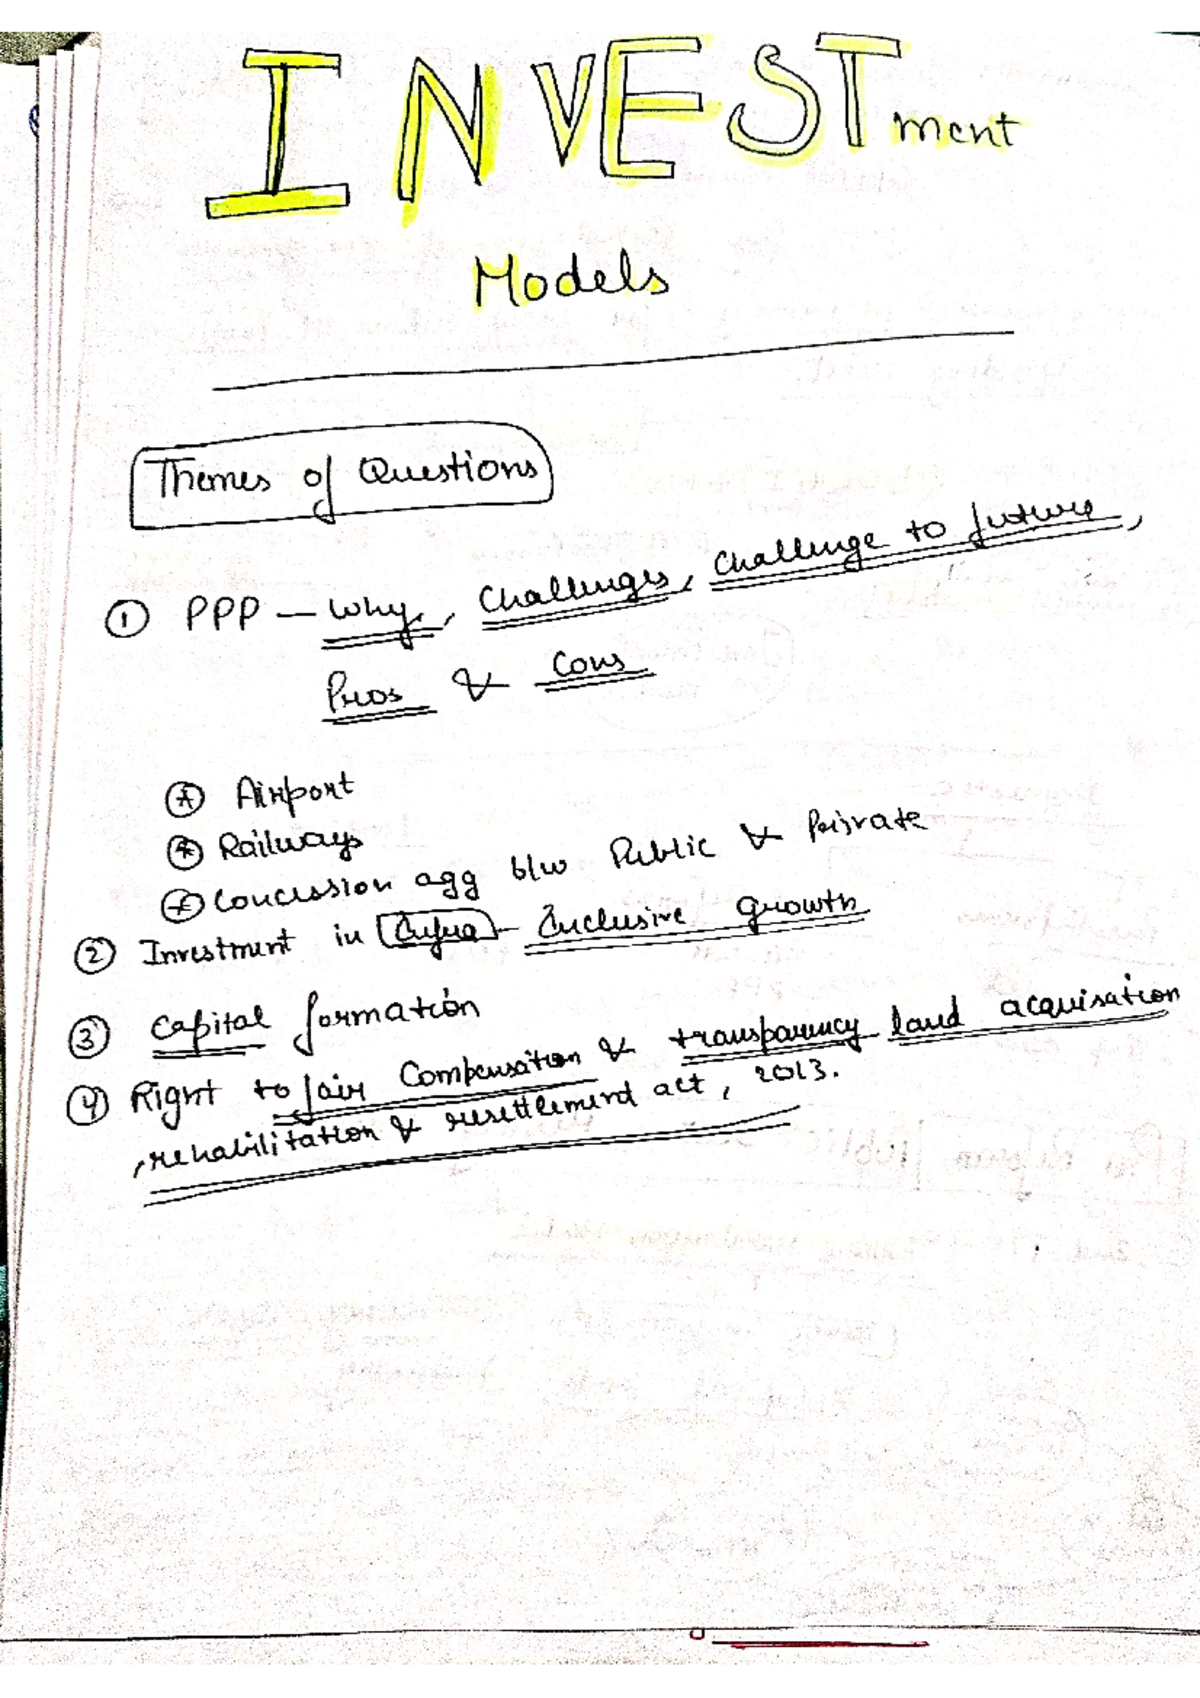 INVESTment
Models
Themes of Questions
① PPP – Why, Challenges, Challenge to future,
Pros & Cons
Airport
Railways
Concession agg b/w Public & Private
② Investment in Infra – Inclusive growth
③ Capital formation
④ Right to fair Compensation & transparency land acquisation
, rehabilitation & resettlement act, 2013.